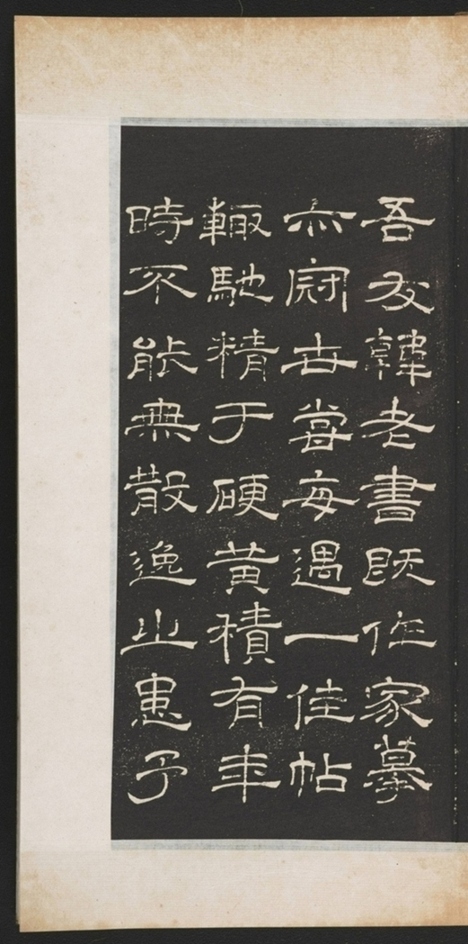 吾友韓老書既作家摹
亦冠世當每遇一佳帖
輙馳精于硬黄積有年
時不能無散逸之患予